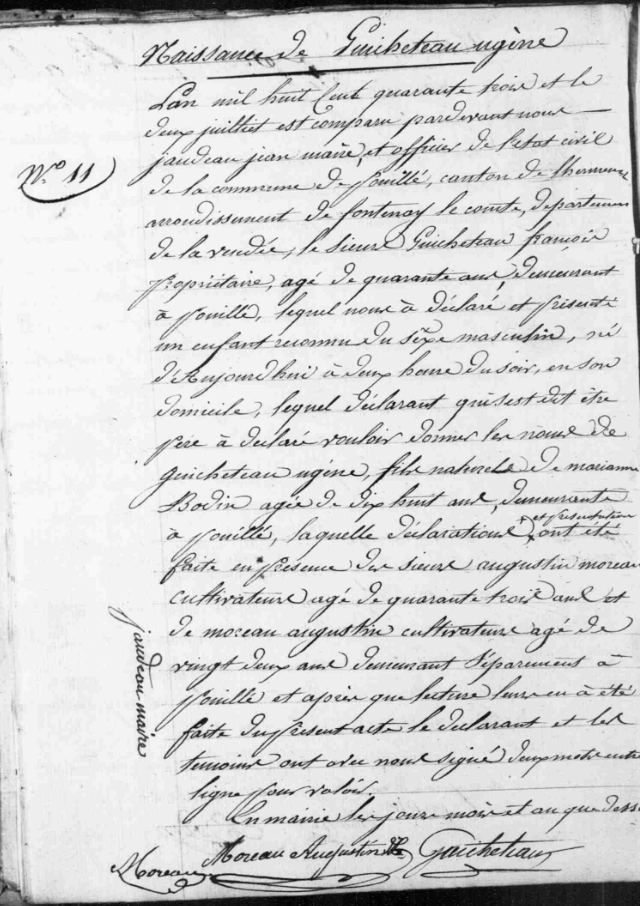 Naissance de Guicheteau ugène
N.o 11
L'an mil huit cent quarante trois et le
deux juilliet est comparu pardevant nous
jaudeau jean maire, et officier de l'état civil
de la commune de pouillé, canton de lhermenau
arrondissement de fontenay le comte, departemen
de la vendée, le sieur Guicheteau françois
propriétaire, agé de quarante ans, demeurant
à pouillé, lequel nous à déclaré et présenté
un enfant reconnu du séxe masculin, né
d'Aujourdhui à deux heure du soir, en son
domicile, lequel déclarant qui s'est dit être
père à déclaré vouloir donner les noms de
guicheteau ugène, fils naturele de marianne
Bodin agée de dix huit ans, demeurante
à pouillé, laquelle déclarations et présentation ont été
faite en présence des sieurs augustin moreau
cultivateurs agé de quarante trois ans et
de moreau augustin cultivateurs agé de
vingt deux ans demeurant séparement à
pouillé et après que lecture leurs en à été
faite du présent acte le déclarant et les
temoins ont avec nous signé deux mots entre
ligne pour valoir.
En mairie les jours mois et an que dess
jaudeau maire
Moreau Moreau Augustin Guicheteau